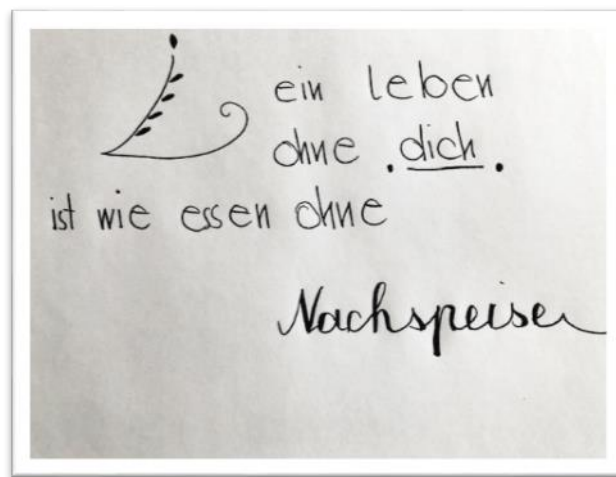 ein leben
ohne .dich.
ist wie essen ohne
Nachspeise